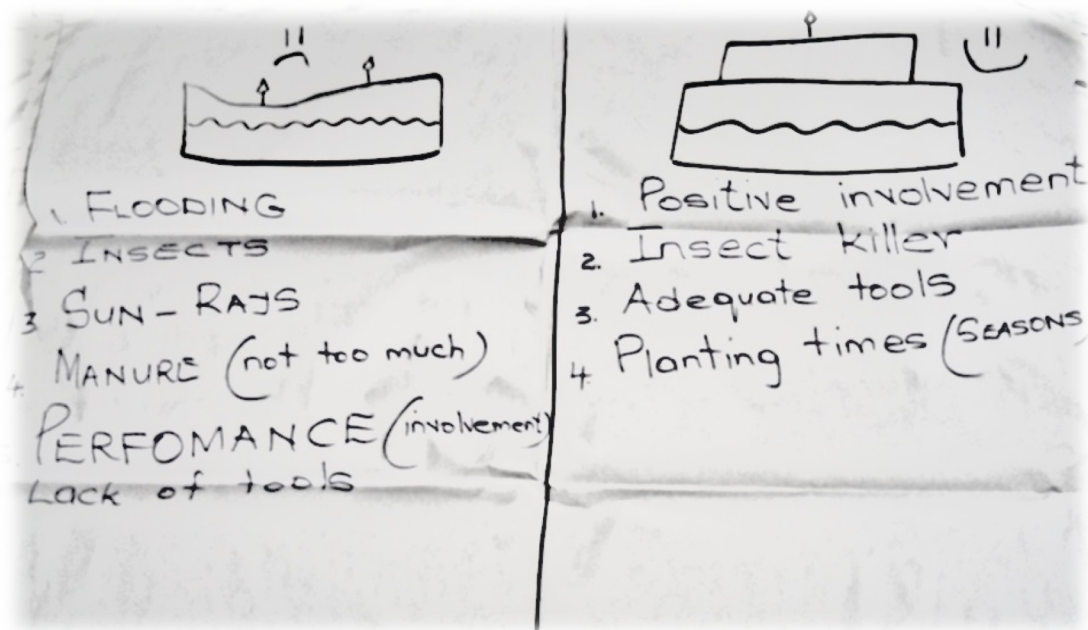 1. FLOODING
2 INSECTS
3 SUN-RAYS
4. MANURE (not too much)
PERFOMANCE (involvement)
Lack of tools
1. Positive involvement
2. Insect killer
3. Adequate tools
4. Planting times (SEASONS)